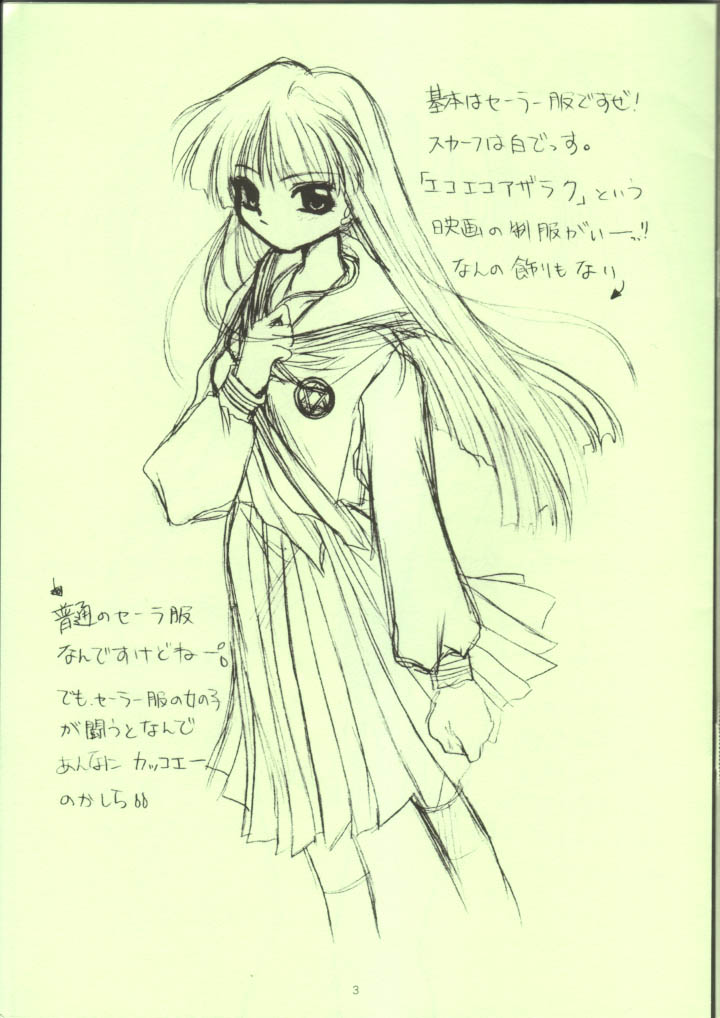 基本はセーラー服ですぜ!
スカーフは白でっす。
「エコエコアザラク」という
映画の制服がいーっ!!
なんの飾りもない
普通のセーラ服
なんですけどねー。
でも、セーラー服の女の子
が闘うとなんで
あんなに カッコエー
のかしら
3